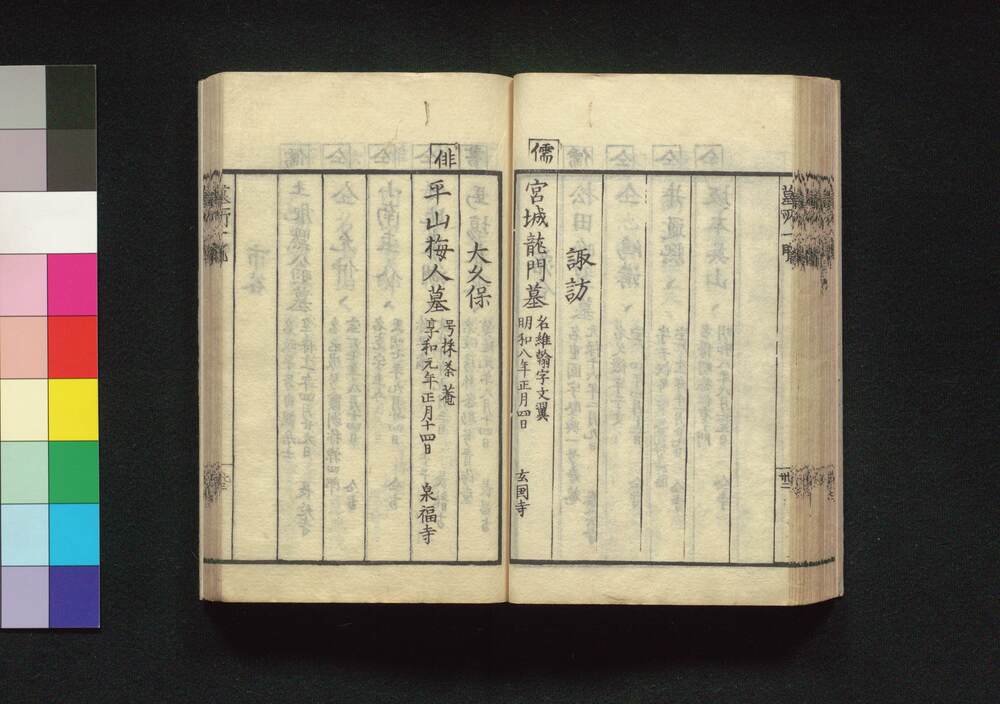 諏訪
儒
宮城龍門墓
名維翰字文翼
明和八年正月四日
玄国寺
大久保
俳
平山梅人墓
号採荼菴
享和元年正月十四日
泉福寺